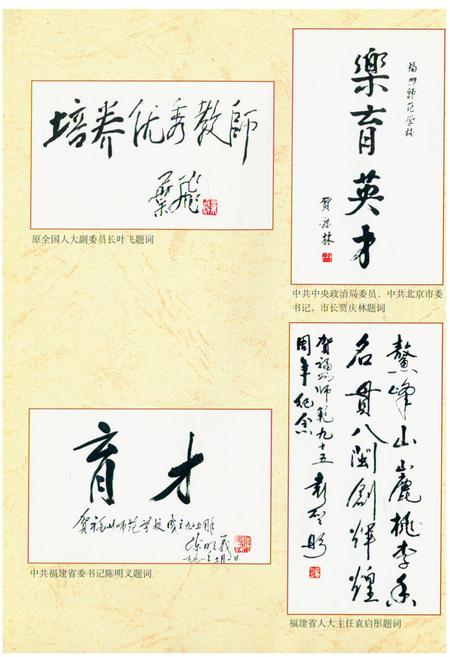 培养优秀教師
葉飛
原全国人大副委员长叶飞题词
福州師范学校
樂育英才
賈慶林
中共中央政治局委员、中共北京市委
书记、市长贾庆林题词
育才
贺福州师范学校成立九五周年
陈明义
中共福建省委书记陈明义题词
鰲峰山麓桃李香
名贯八闽創輝煌
贺福州师範九十五
周年纪念
袁啓彤
福建省人大主任袁启彤题词